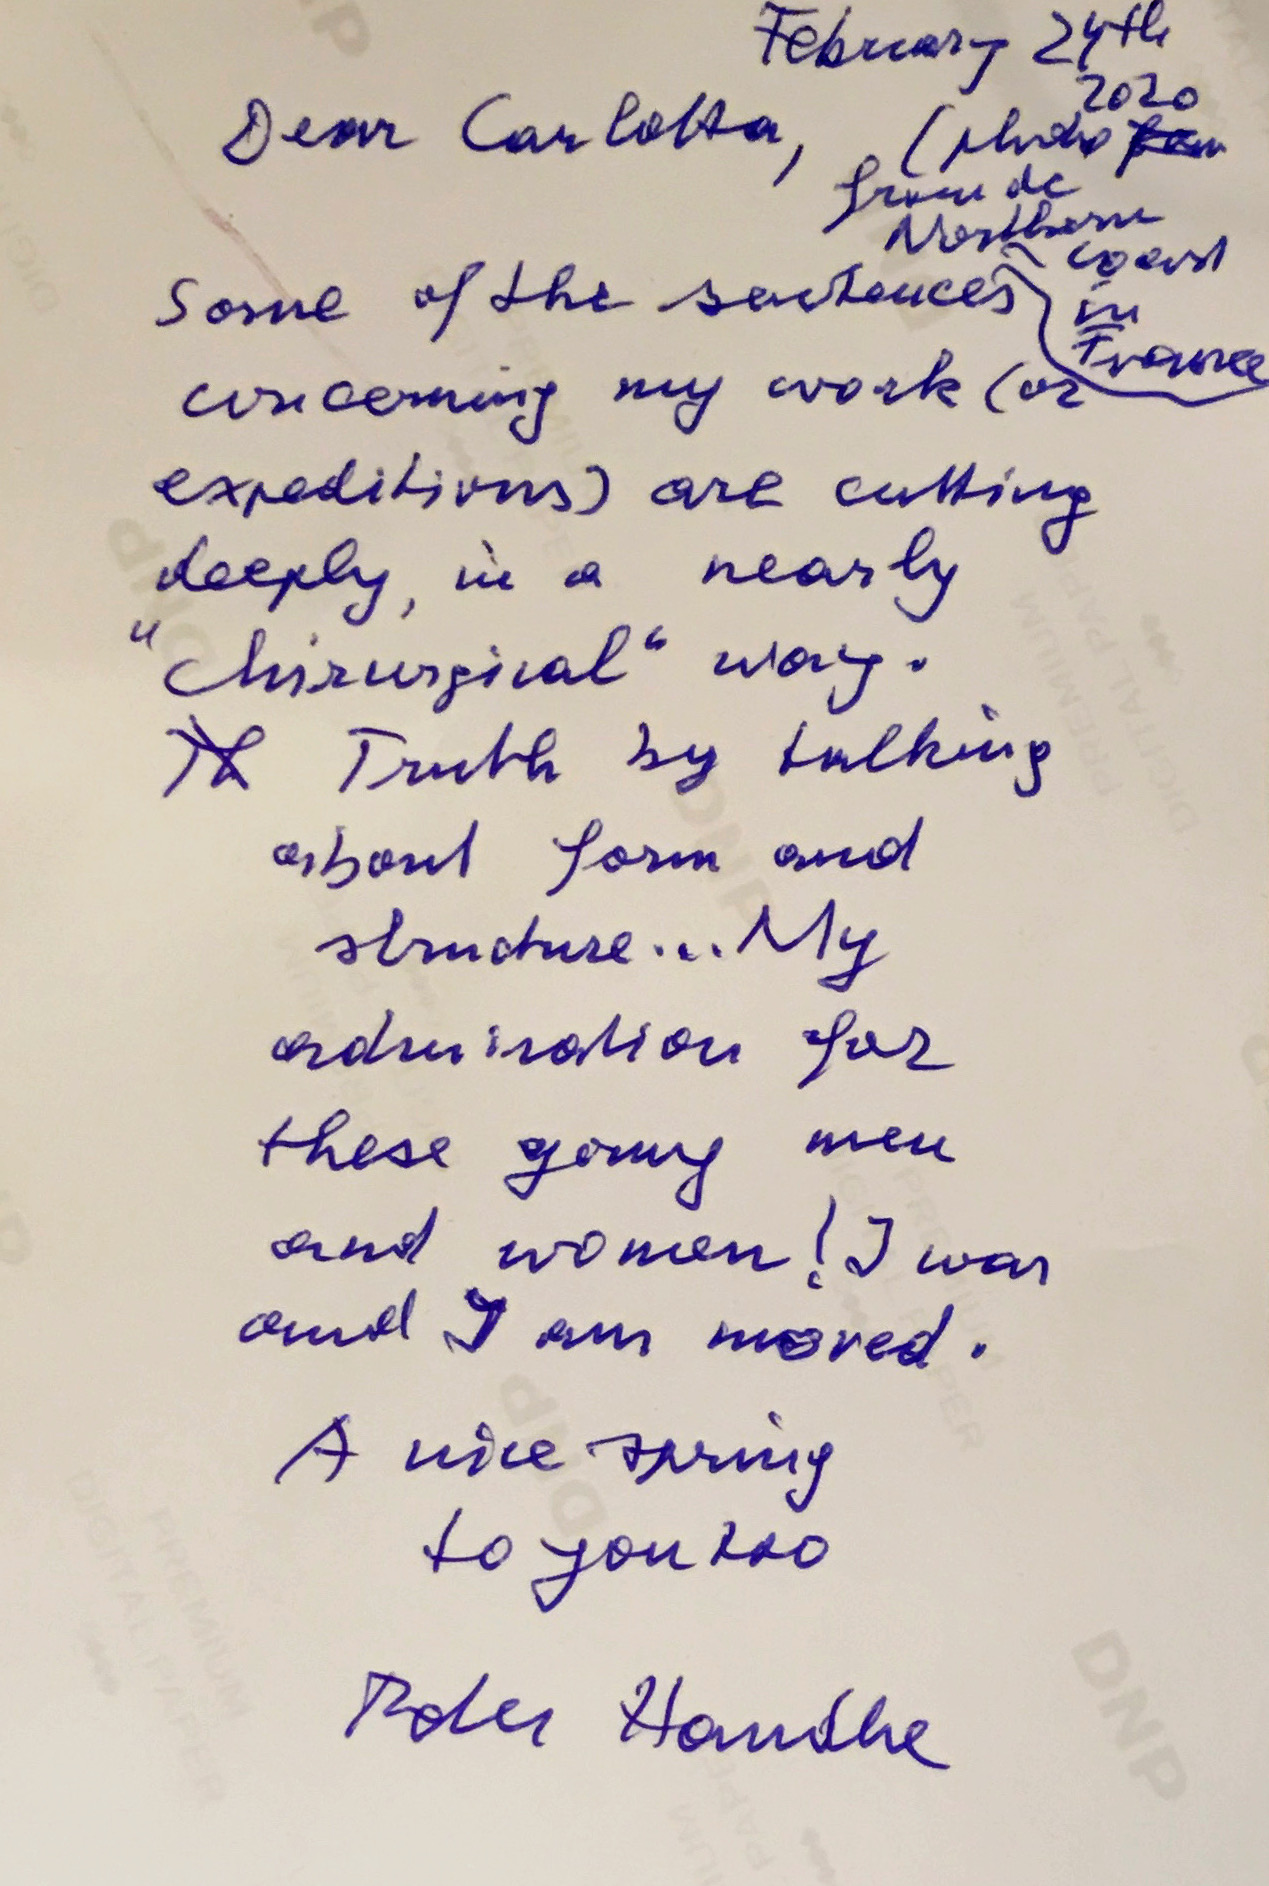 February 24th
2020
Dear Carlotta, (photo
from de
Northern
coast
in
France
Some of the sentences
concerning my work (or
expeditions) are cutting
deeply, in a nearly
"Chirurgical" way.
Truth by talking
about form and
structure... My
admiration for
these young men
and women! I was
and I am moved.
A nice spring
to you too
Peter Handke
DNP
PREMIUM
DIGITAL PAPER